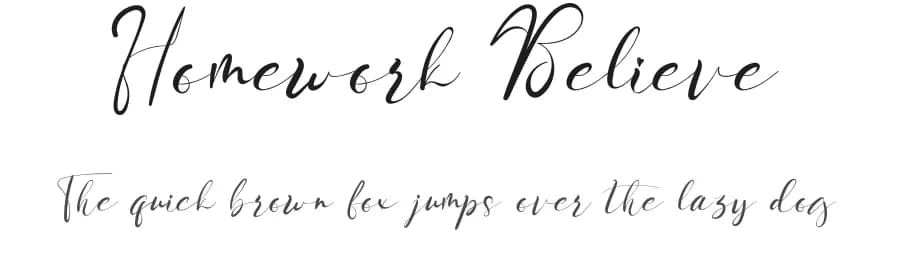 Homework Believe
The quick brown fox jumps over the lazy dog